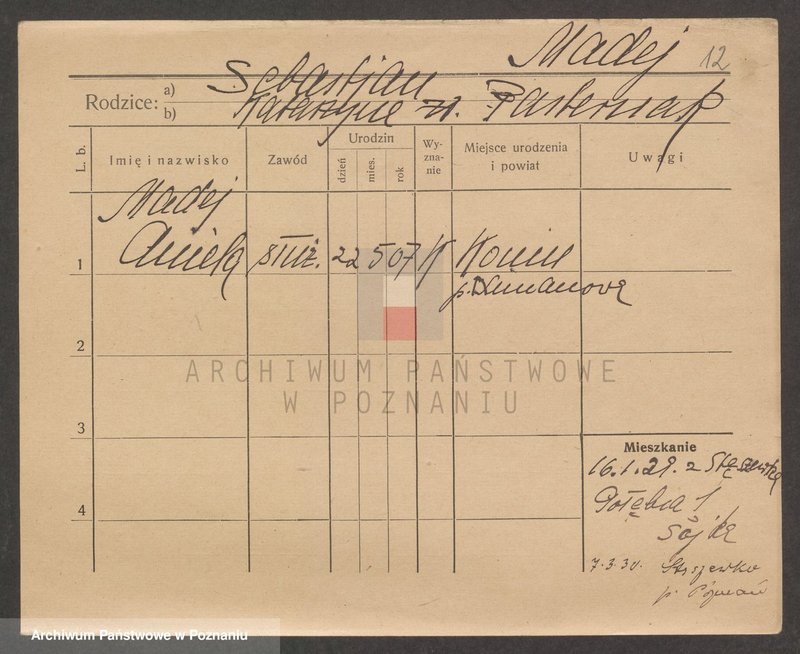 Madej 12
Rodzice: a) Sebastjan
b) Katarzyna z d. Pasternak
L. b. Imię i nazwisko Zawód Urodzin dzień mies. rok Wyznanie Miejsce urodzenia i powiat Uwagi
Madej
1 Aniela służ. 22 5 07 K Konin
p. Limanova
2
ARCHIWUM PAŃSTWOWE
W POZNANIU
3
Mieszkanie
16.1.29. z Stęszewka
Gołębia 1
4
Sójka
7.3.30. Stęszewko
p. Poznań
Archiwum Państwowe w Poznaniu